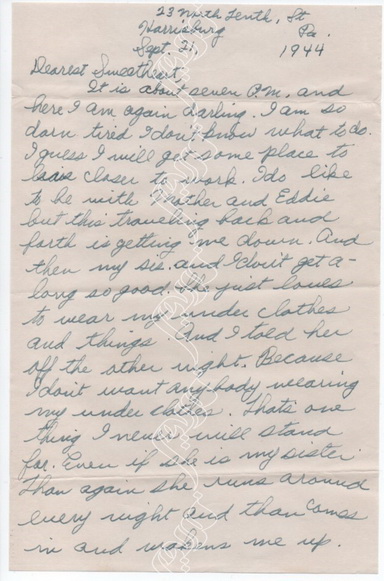 23 North Tenth, St
Harrisburg Pa.
Sept. 21, 1944
Dearest Sweetheart,
It is about seven P.M. and
here I am again darling. I am so
darn tired I don't know what to do.
I guess I will get some place to
closer to work. I do like
to be with Mother and Eddie
but this traveling back and
forth is getting me down. And
then my sis. and I don't get a-
long so good. She just loves
to wear my under clothes
and things. And I told her
off the other night. Because
I don't want anybody wearing
my under clothes. Thats one
thing I never will stand
for. Even if she is my sister.
Than again she runs around
every night and than comes
in and wakens me up.